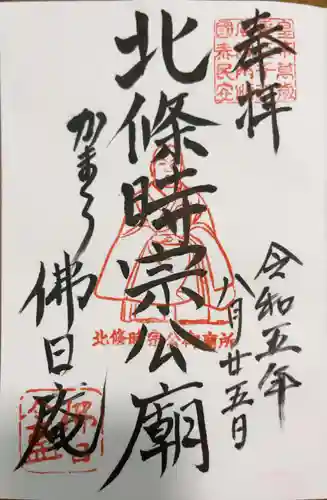 奉拝
令和五年
八月廿五日
北條時宗公廟
かまくら
佛日庵
北條時宗公御廟所